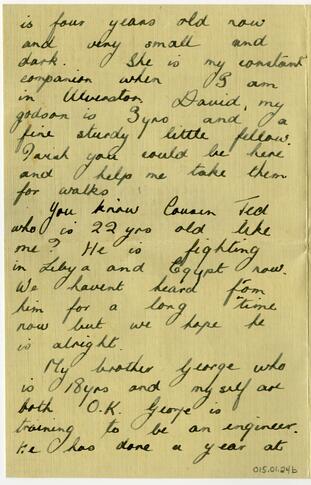 is four years old now
and very small and
dark. She is my constant
companion when I am
in Ulverston. David, my
godson is 3yrs and a
fine sturdy little fellow.
I wish you could be here
and help me take them
for walks
You know Cousin Ted
who is 22 yrs old like
me? He is fighting
in Libya and Egypt now.
We havent heard from
him for a long time
now but we hope he
is alright.
My brother George who
is 18yrs and myself are
both O.K. George is
training to be an engineer.
He has done a year at
015.01.24b